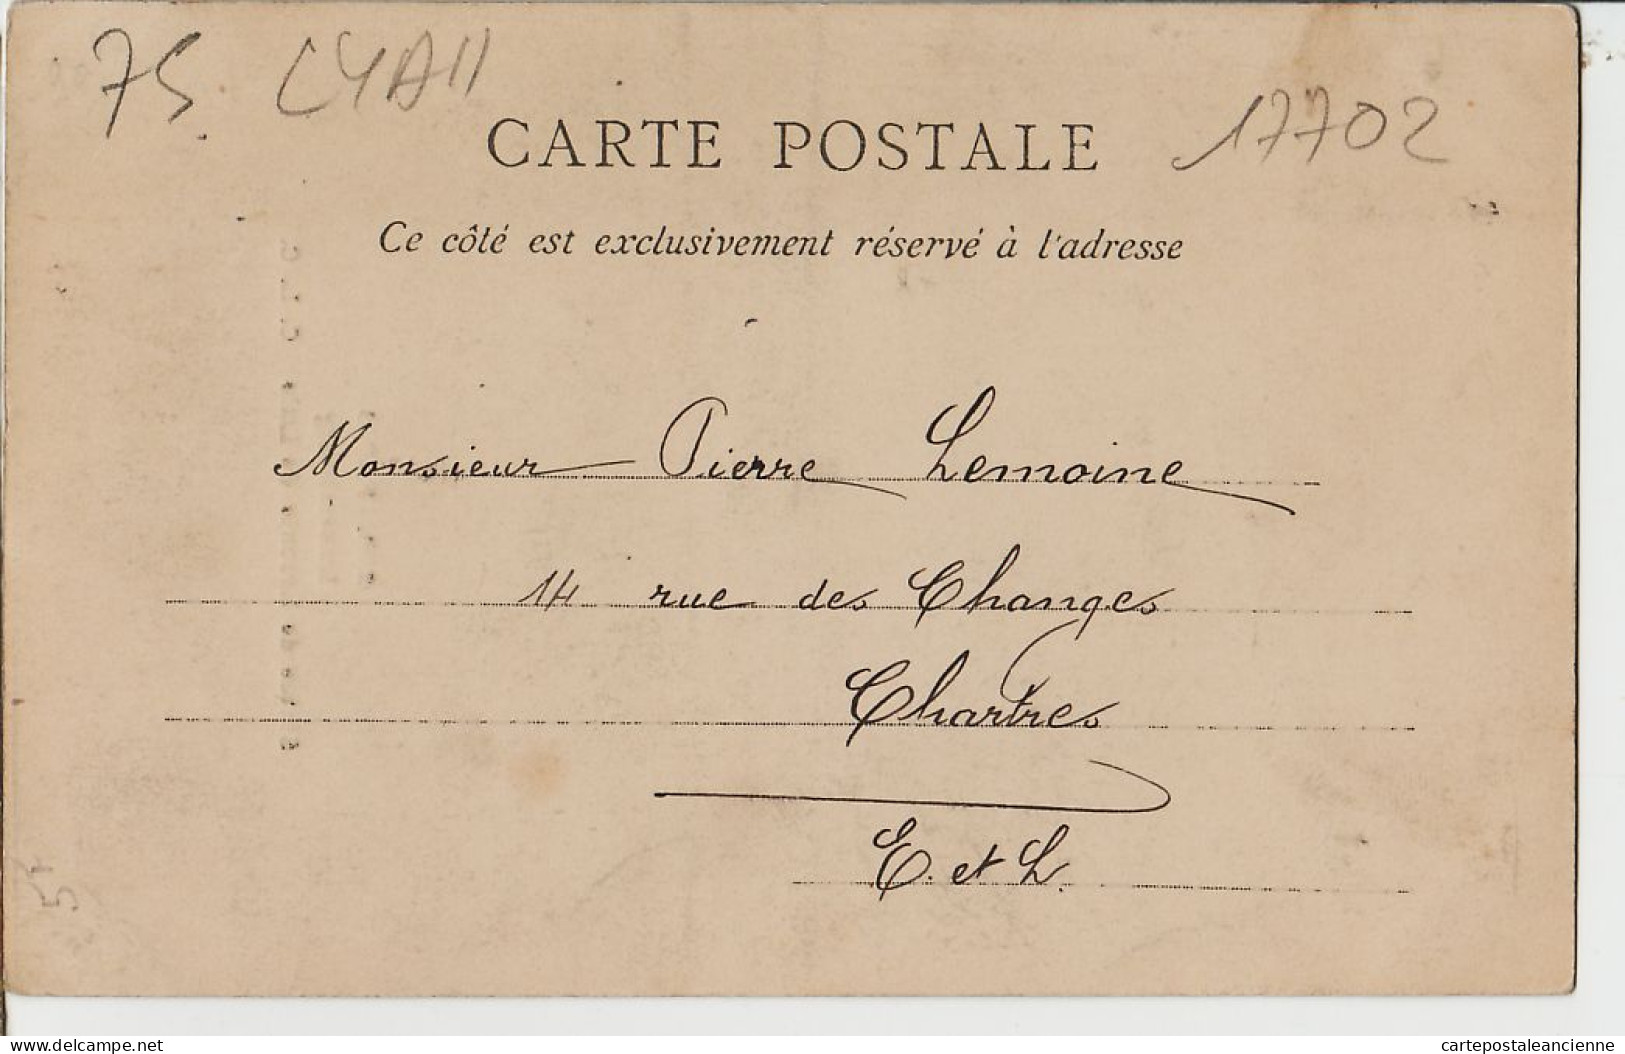 75
17702
CARTE POSTALE
Ce côté est exclusivement réservé à l'adresse
Monsieur Pierre Lemoine
14 rue des Changes
Chartres
E. et L.
www.delcampe.net
cartepostaleancienne